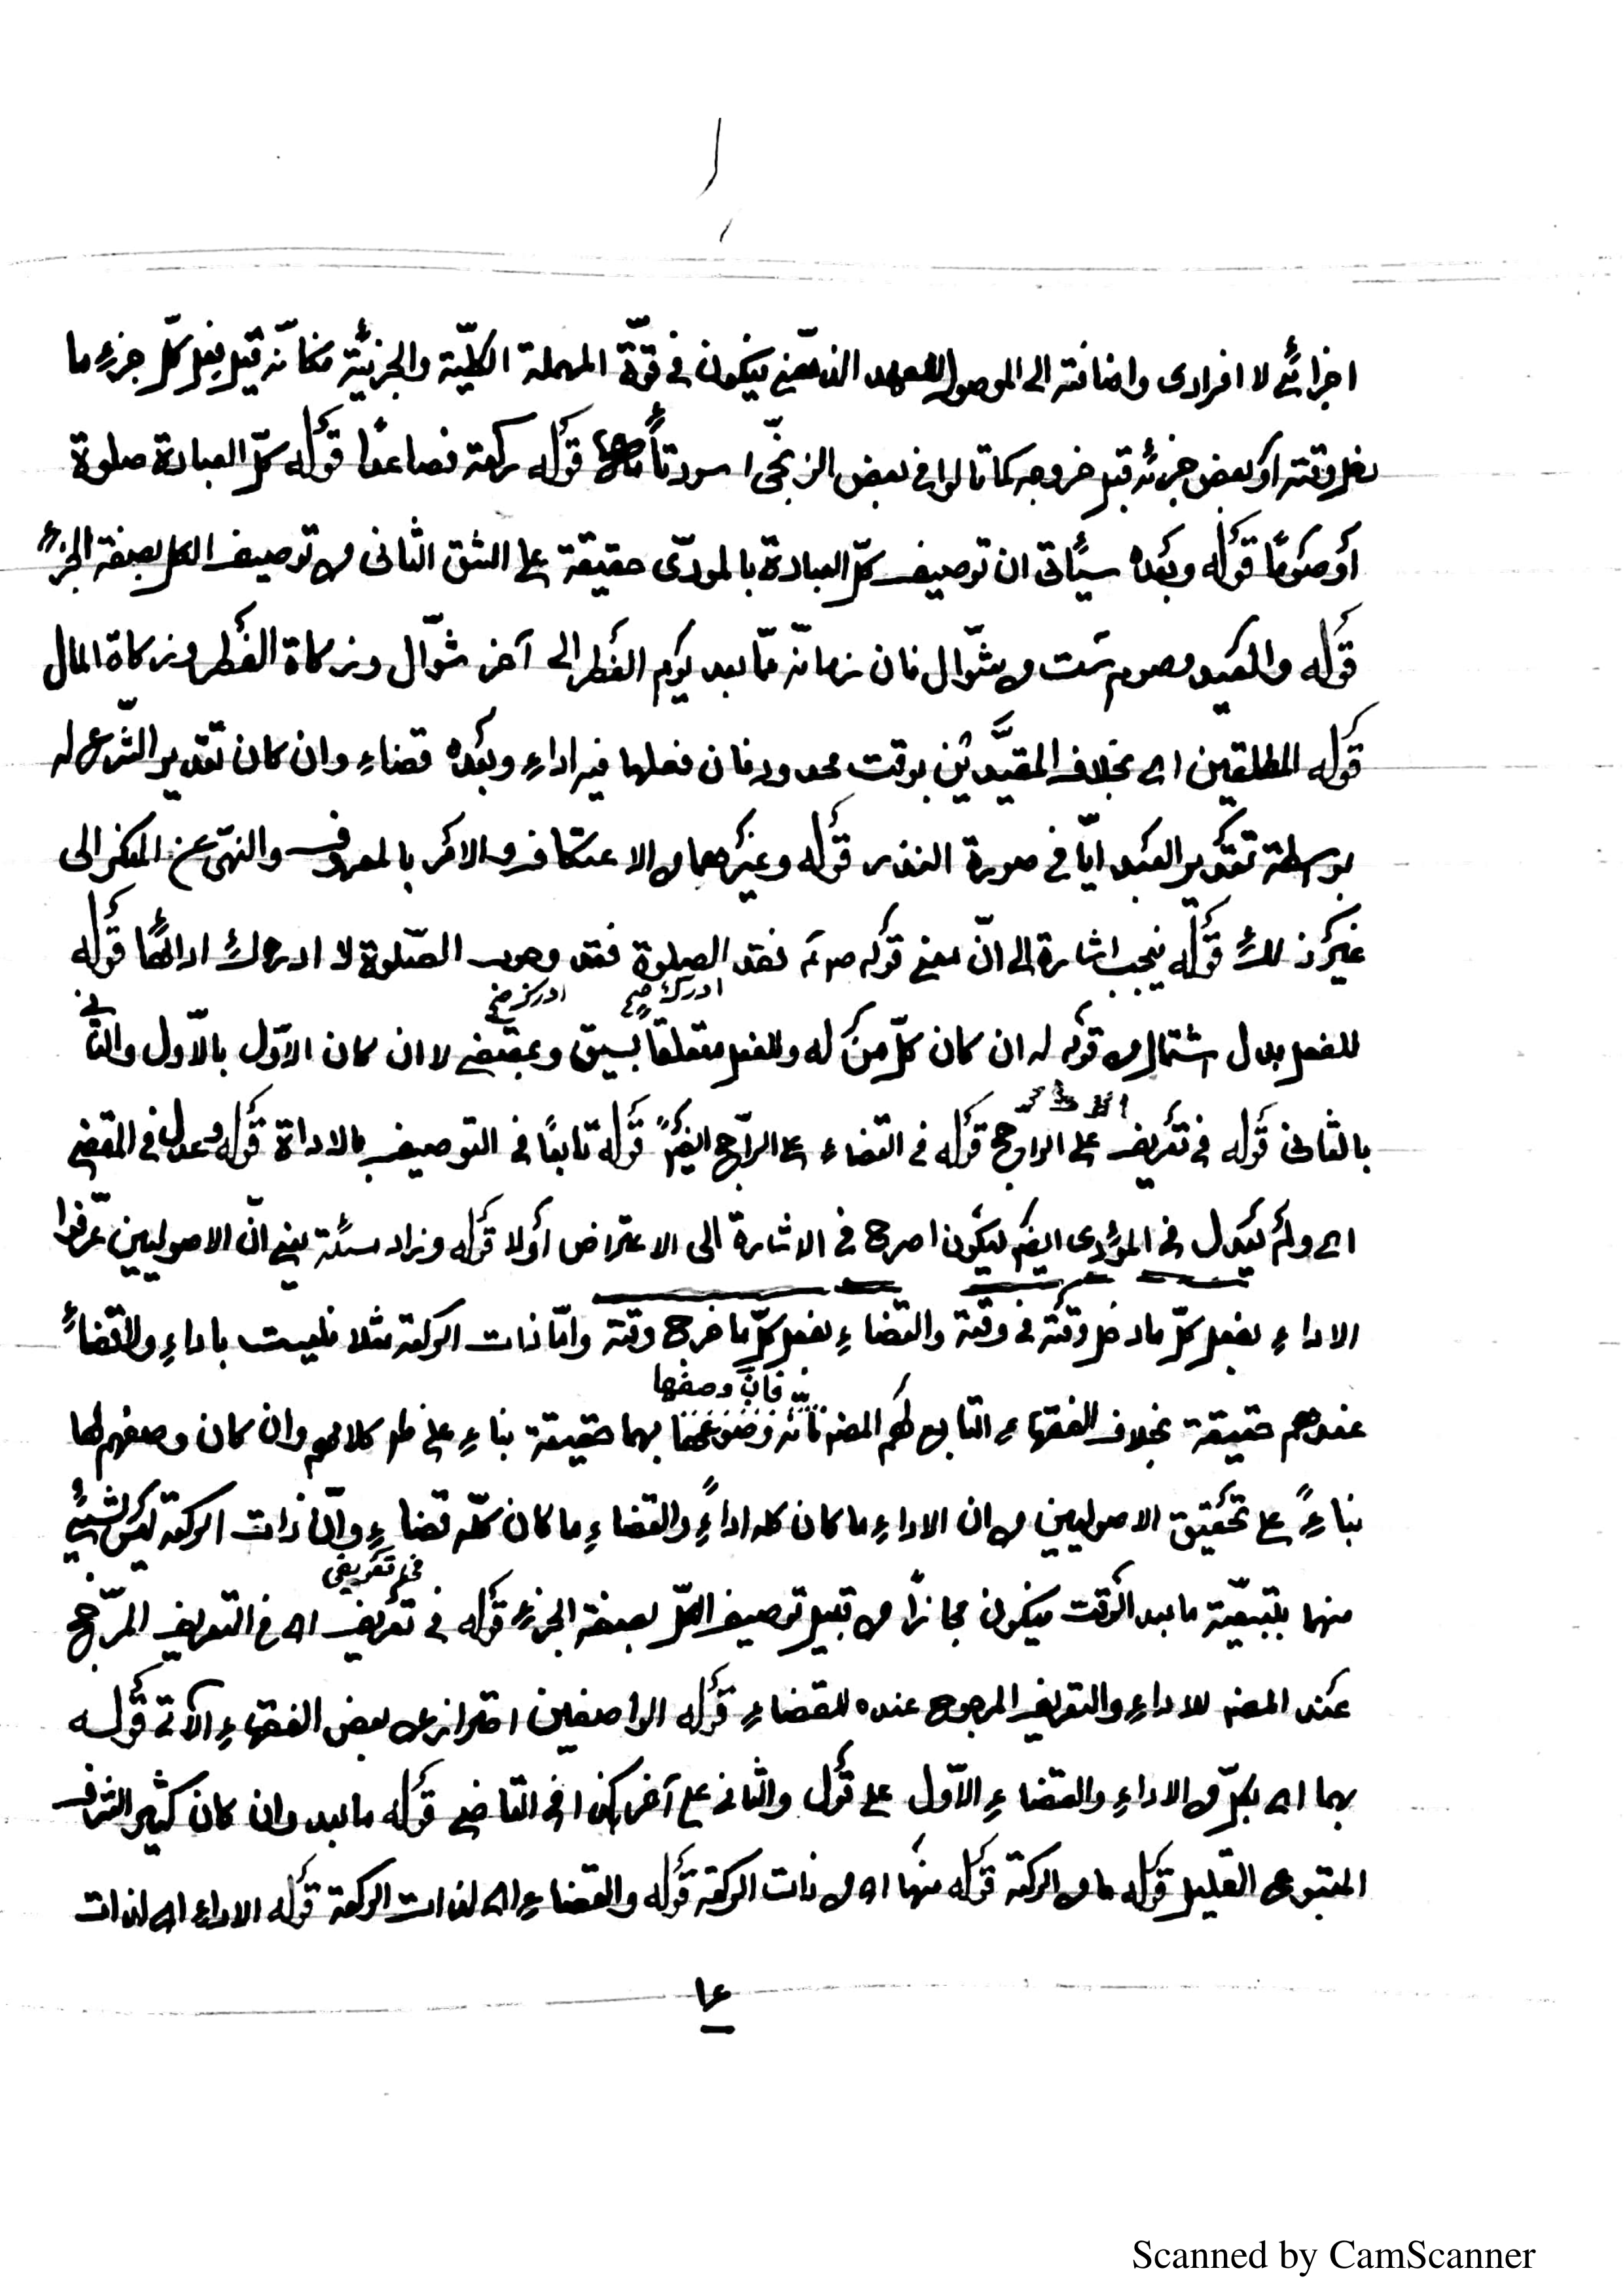 اجزائيّ لا افرادى واضافته الى الموصول للعهد الذهنى فيكون فى قوّة المهملة الكليّة والجزئيّة فكانّه قيل فعل كلّ جزءٍ ما
دخل وقته او بعض جزئه قبل خروجه كما قالوا فى بعض الزنجىّ اسود قوله ركعة فصاعدًا قوله كلّ العبادة صلوة
أو صَومًا قوله وبَعده سيَأتى ان توصيف كلّ العبادة بالمودّى حقيقة على الشق الثانى لا توصيف الكل بصفة الجزء
قوله والمقيد بصوم ست من شوّال فان زمانه ممّا بعد يَوم الفطر الى آخر شوّال وزكاة الفطر وزكاة المال
قوله المطلقين اى بخلاف المقيَّدَين بوقت محدود فان فعلها فيه اداءٍ وبَعده قضاءٍ وان كان تقدير الشّرع له
بوسطة تقدير العَبد ايّا فى صورة النذر قوله وغيرهما من الاعتكاف والامر بالمعروف والنهى عن المنكر الى
غَير ذلك قوله فيجب اشارة الى انّ معنى قوله صوتَه فقد الصلوة فقد وجوب الصّلوة لا ادراك ادائهَا قوله
ادرك صح ادرك صح
للفعل بدل اشتمال من قوله له ان كان كلّ من له وللفعل متعلقا بسبق وبمقتضى لا ان كان الاوّل بالاّول والثانى
بالثانى قوله فى تَعريف على الراجح قوله فى القضاء على الرّاجح ايضًا قوله تابعًا فى التوصيف بالاداة قوله وعدل فى المقضى
اى ولم يَعدل فى المؤدى ايضًا ليكون اصرح فى الاشارة الى الاعتراض أولا قوله وزاد مسئلة يعنى انّ الاصوليين عرّفوا
الاداءِ بفعل كلّ ما دخل وقته فى وقته والقضاءِ بفعل كلّ ما خرج وقته وامّا ذات الركعة مثلا فليست باداءِ ولا قضاءٍ
فانّ وصفها
عندهم حقيقة بخلاف الفقهاءِ التابع لهم المصنف بهما حقيقة بناءِ على ظ كلامهم وان كان وصفهم لها
بناءً على تحقيق الاصوليين من ان الاداءِ ما كان كله اداءً والقضاءِ ما كان كلّه قضاءِ وانّ ذات الركعة ليسَ لشيئ
فى تعريفى
منهما بتبعيّة ما بعد الوقت فيكون مجازًا من قبيل توصيف الكلّ بصفة الجزءِ قوله فى تَعريف اى فى التعريف المرجّح
عَند المصنف للاداءِ والتعريف المرجوح عنده للقضاءِ قوله الواصفين احتراز عن بعض الفقهاءِ الآتى قوله
بهما اى بكلّ من الاداءِ والقضاءِ الاّول على قَول والثانى على آخر كذا فى القاضى قوله ما بعد وان كان كثير الشرف
المتبوع القليل قوله ما من الركعة قوله منهَا اى من ذات الركعة قوله والقضاءِ اى لذات الركعة قوله الاداءِ اى لذات
١٤
Scanned by CamScanner